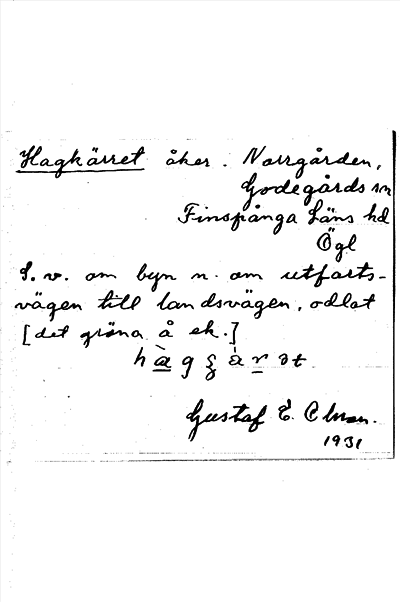 Hagkärret åker. Norrgården,
Godegårds sn
Finspånga Läns hd
Ögl
S. v. om byn n. om utfarts-
vägen till landsvägen, odlat
[det gröna å ek.]
Gustaf E.
1931